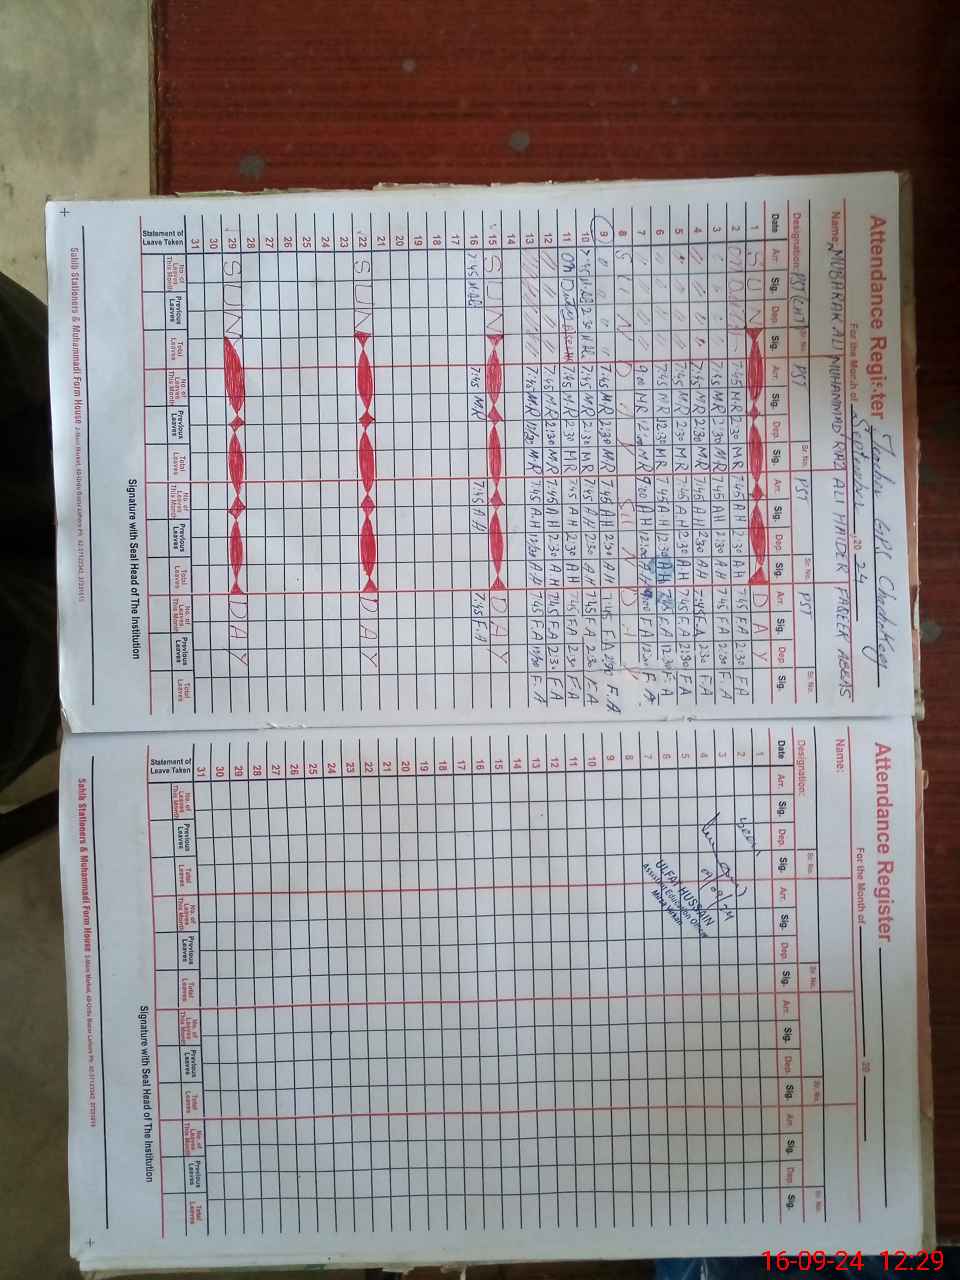 Attendance Register
For the Month of September 2024
Name: MUBARAK ALI MUHAMMAD RAZ ALI HAIDER FAREER ABBAS
Designation: PST (CHT) Sr. No. PST Sr. No. PST Sr. No. PST Sr. No.
Date Arr. Sig. Dep. Sig. Arr. Sig. Dep. Sig. Arr. Sig. Dep. Sig. Arr. Sig. Dep. Sig.
1 S U N D A Y
2 7:45 MR 2:30 MR 7:45 AH 2:30 AH 7:45 F.A 2:30 F.A
3 7:45 MR 2:30 MR 7:45 AH 2:30 AH 7:45 F.A 2:30 F.A
4 7:45 MR 2:30 MR 7:45 AH 2:30 AH 7:45 F.A 2:30 F.A
5 7:45 MR 2:30 MR 7:45 AH 2:30 AH 7:45 F.A 2:30 F.A
6 7:45 MR 12:30 MR 7:45 AH 12:30 AH 7:45 F.A 12:30 F.A
7 9:00 MR 12:00 MR 9:00 AH 12:00 AH 9:00 F.A 12:00 F.A
8 S U N D A Y S U N D A Y
9 7:45 MR 2:30 MR 7:45 AH 2:30 AH 7:45 F.A 2:30 F.A
10 7:45 2:30 7:45 MR 2:30 MR 7:45 AH 2:30 AH 7:45 F.A 2:30 F.A
11 On Duty 7:45 MR 2:30 MR 7:45 AH 2:30 AH 7:45 F.A 2:30 F.A
12 7:45 MR 2:30 MR 7:45 AH 2:30 AH 7:45 F.A 2:30 F.A
13 7:45 MR 12:30 MR 7:45 AH 12:30 AH 7:45 F.A 12:30 F.A
14
15 S U N D A Y
16 7:45 7:45 MR 7:45 AH 7:45 F.A
17
18
19
20
21
22 S U N D A Y
23
24
25
26
27
28
29 S U N D A Y
30
31
Statement of Leave Taken No. of Leaves This Month Previous Leaves Total Leaves No. of Leaves This Month Previous Leaves Total Leaves No. of Leaves This Month Previous Leaves Total Leaves No. of Leaves This Month Previous Leaves Total Leaves
Signature with Seal Head of The Institution
Sahib Stationers & Muhammadi Form House
Attendance Register
For the Month of 20
Name:
Designation: Sr. No. Sr. No. Sr. No. Sr. No.
Date Arr. Sig. Dep. Sig. Arr. Sig. Dep. Sig. Arr. Sig. Dep. Sig. Arr. Sig. Dep. Sig.
1
2 Seen
3
4
5
6
7
8
9
10
11
12
13
14
15
16
17
18
19
20
21
22
23
24
25
26
27
28
29
30
31
ULFAT HUSSAIN
Assistant Education Officer
Statement of Leave Taken No. of Leaves This Month Previous Leaves Total Leaves No. of Leaves This Month Previous Leaves Total Leaves No. of Leaves This Month Previous Leaves Total Leaves No. of Leaves This Month Previous Leaves Total Leaves
Signature with Seal Head of The Institution
Sahib Stationers & Muhammadi Form House
16-09-24 12:29